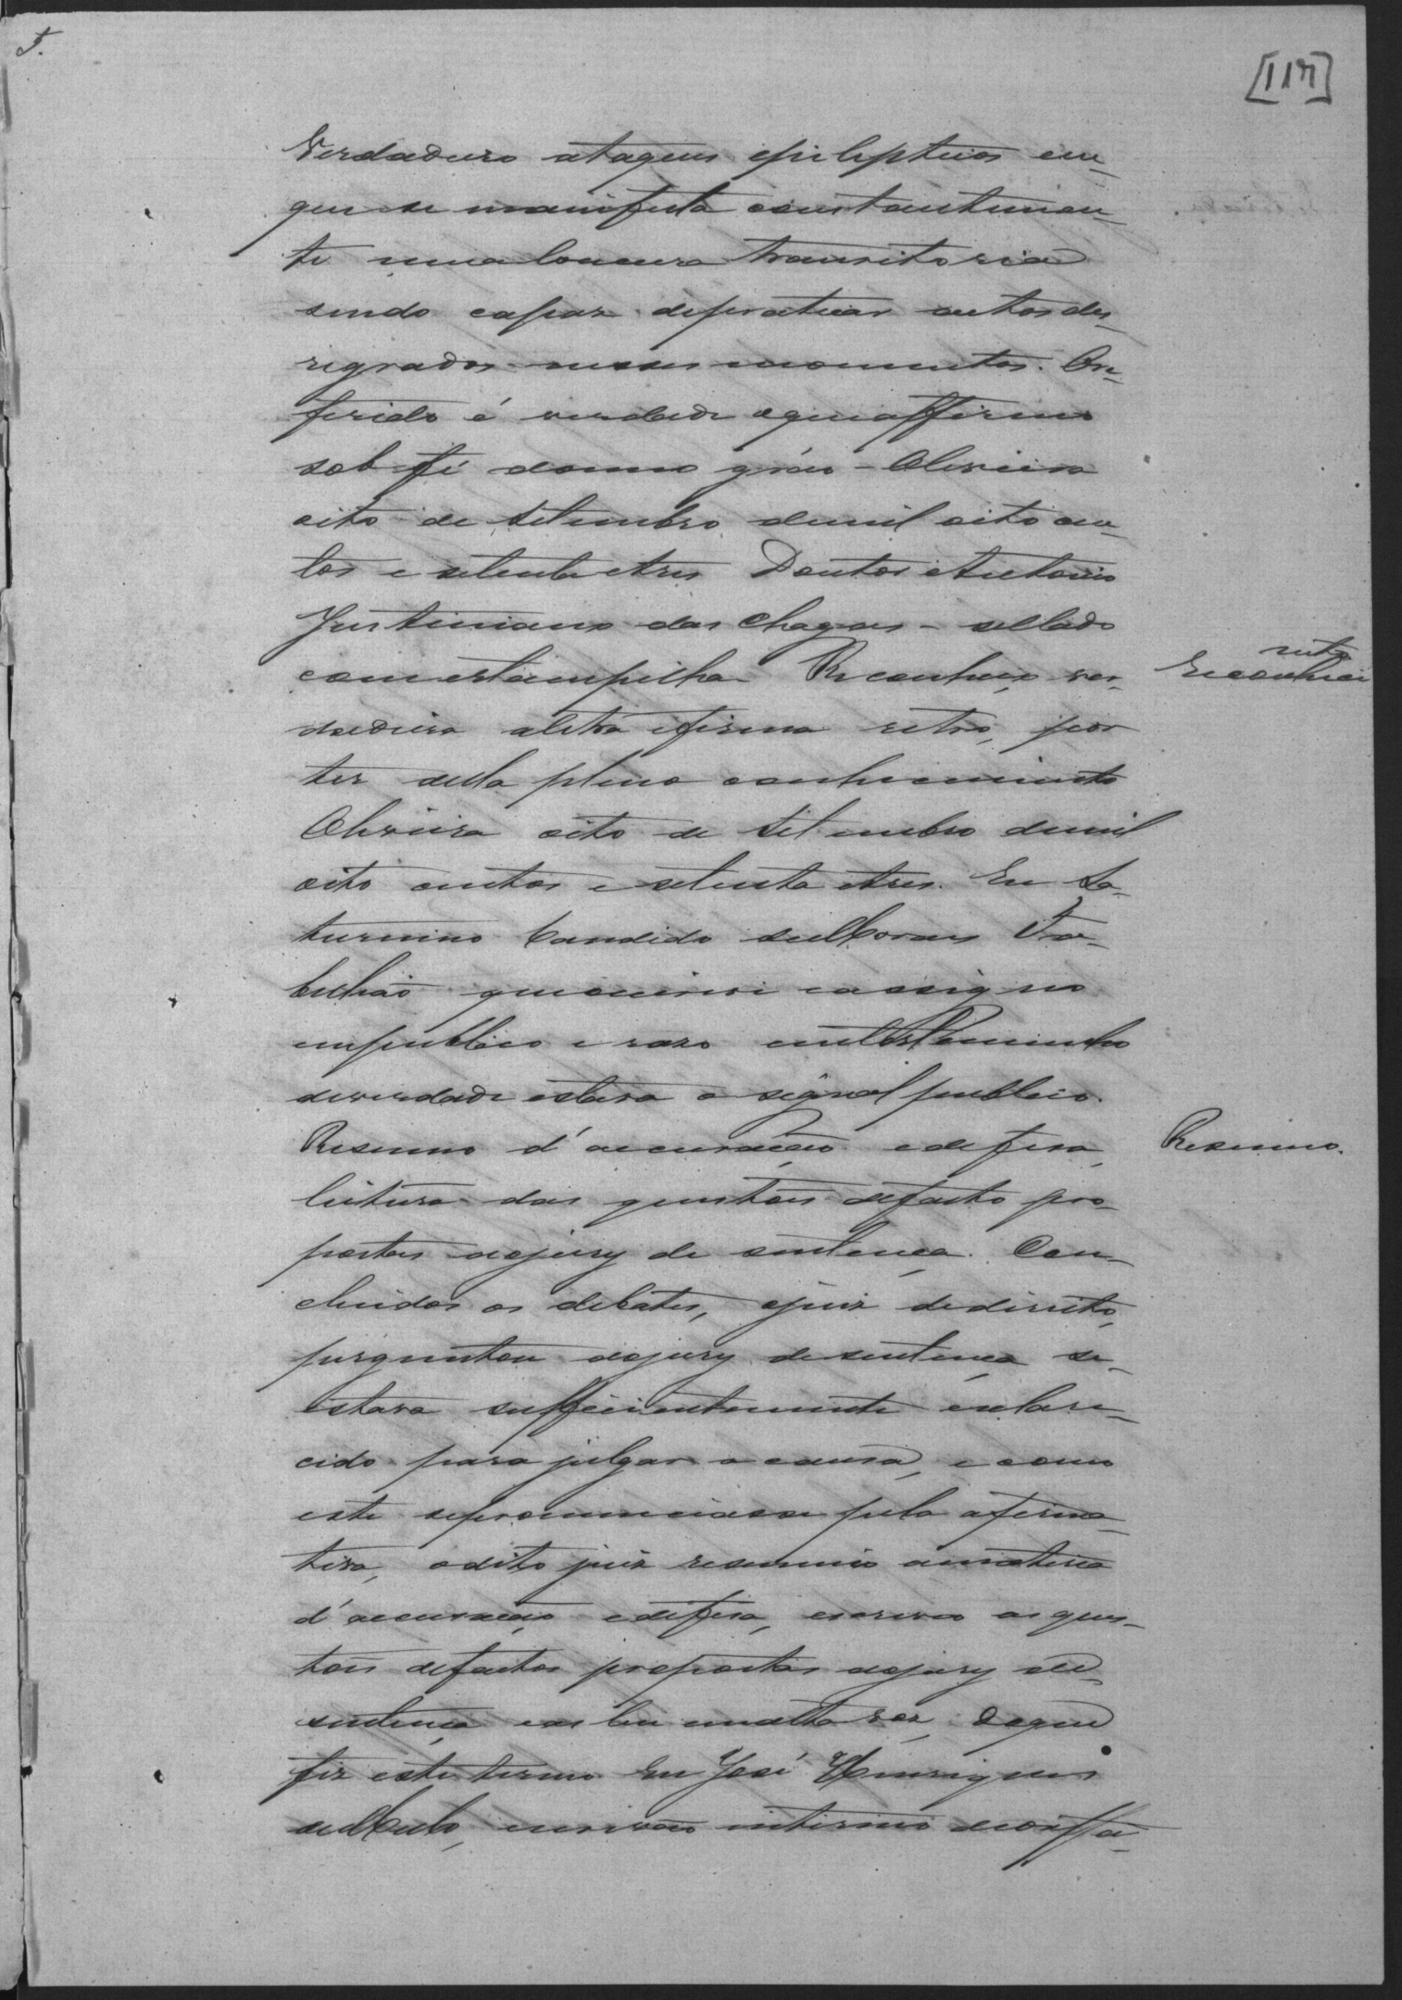 [11r]
Verdadeiro ataques epilepticos em-
que se manifesta constantemen-
te uma loucura transitoria
sendo capaz depraticar autos des-
regrados nesses momentos. Ore-
ferido é verdade oqueaffirmo
sob fé domeo gráo - Oliveira
oito de Setembro demil oito cen-
tos e setenta etres Doutor Antonio
Justiniano das Chagas - sellado
comestampilha Reconheço ver-
dadeira aletra efirma retro, por
ter della pleno conhecimento
Oliveira oito de Setembro demil
oito centos e setenta etres. Eu Sa-
turnino Candido deMoraes Ta-
bellião queoescrevi eassigno
empublico e raso emtestemunho
deverdade estava o signal publico.
Resumo d'accusação edefesa,
leitura das questões defacto pro-
postas aojury de sentença. Con-
cluidos os debates, ojuiz dedireito,
perguntou aojury desentença se-
estava sufficientemente esclare-
cido para julgar a causa, e como
este sepronunciasse pela afirma-
tiva, odito juiz resumio amateria
d'accusação edefesa, escreveo as ques-
tões defactos propostas aojury de-
sentença eas leu emalta voz, Doque
fiz este termo Eu José Henriques
deMello, escrivão interino
Reconheci
mto
Resumo.